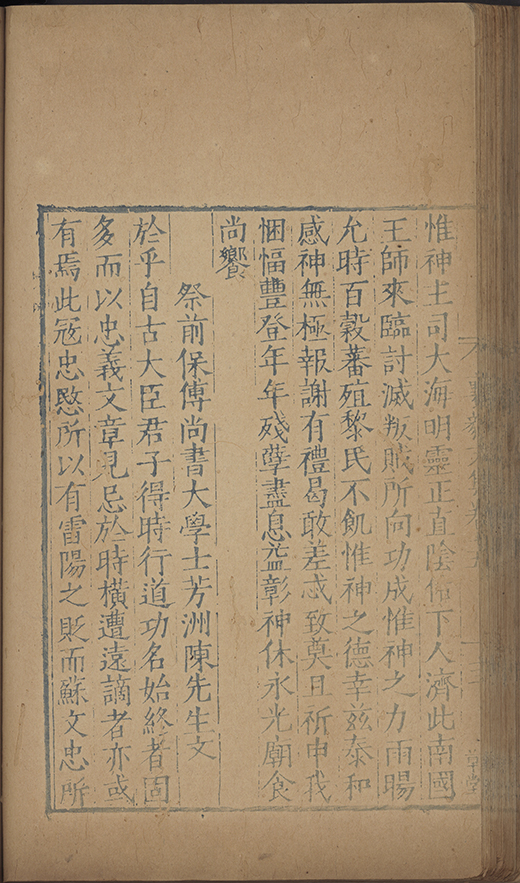 惟神主司大海明靈正直陰佑下人濟此南國
王師來臨討滅叛賊所向功成惟神之力雨暘
允時百糓蕃殖黎民不飢惟神之德幸兹泰和
感神無極報謝有禮曷敢差忒致奠且祈申我
悃愊豐登年年殘孽盡息益彰神休永光廟食
尚饗
祭前保傅尚書大學士芳洲陳先生文
於乎自古大臣君子得時行道功名始終者固
多而以忠義文章見忌於時横遭遠謫者亦或
有焉此冦忠愍所以有雷陽之貶而蘇文忠所